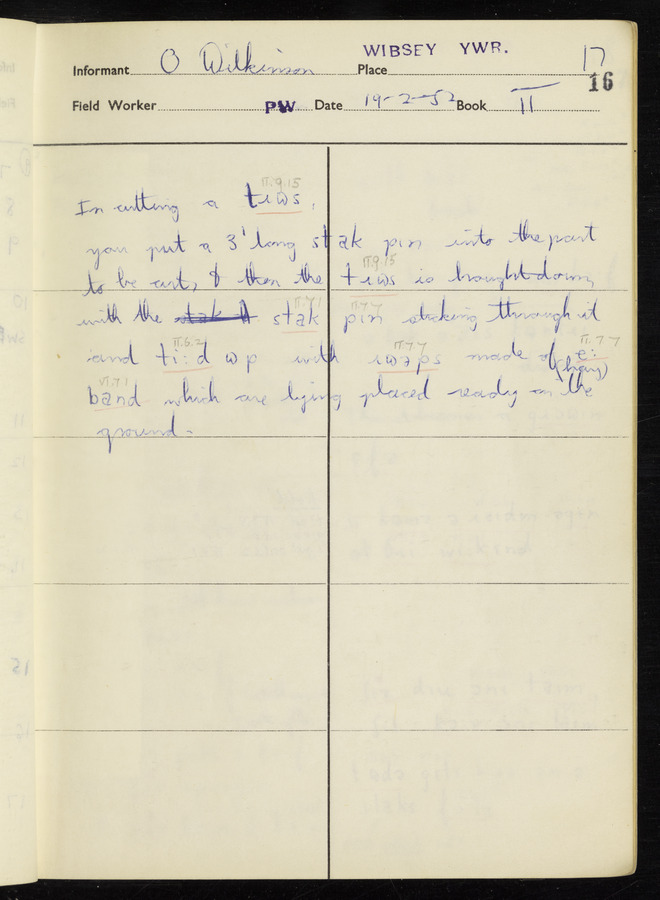 WIBSEY YWR.
Informant O Wilkinson Place 17
16
Field Worker PW Date 19-2-52 Book II
II.9.15
In cutting a tɹɷs,
you put a 3' long stak pin into the part
II.9.15
to be cut, & then the tɹɷs is brought down,
II.7.1 II.7.7
with the stak pin sticking through it
II.7.7 II.7.7
and ti:d ɷp with ɹɷaps made of ɛ: (hay)
VI.7.1
band which are lying placed ready on the
ground.